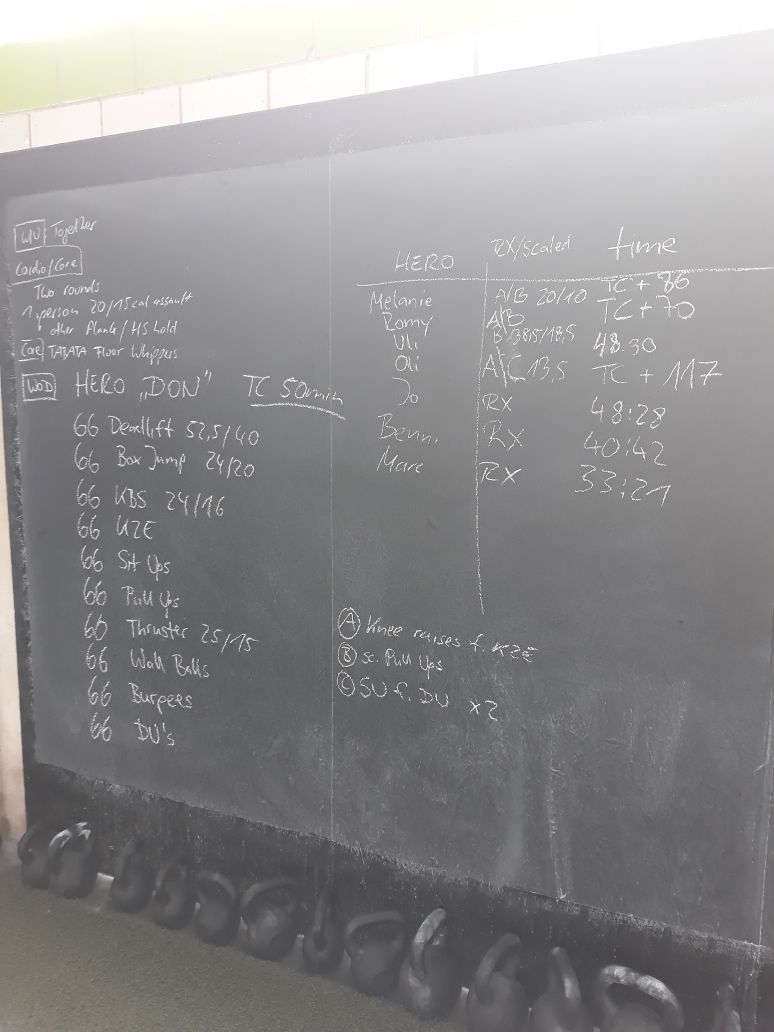 WU: Together
Cardio/Core
Two rounds
1 person 20/15 cal assault
other Plank/HS hold
Core TABATA Floor Whippers
WOD HERO „DON" TC 50min
66 Deadlift 52,5/40
66 Box Jump 24/20
66 KBS 24/16
66 K2E
66 Sit Ups
66 Pull Ups
66 Thruster 25/15
66 Wall Balls
66 Burpees
66 DU's
HERO RX/Scaled time
Melanie A/B 20/10 TC + 86
Romy A/B TC + 70
Uli B 38,5/18,5 48:30
Oli A/C 13,5 TC + 117
Jo RX 48:28
Benni RX 40:42
Marc RX 33:21
A Knee raises f. K2E
B sc. Pull Ups
C SU f. DU x2